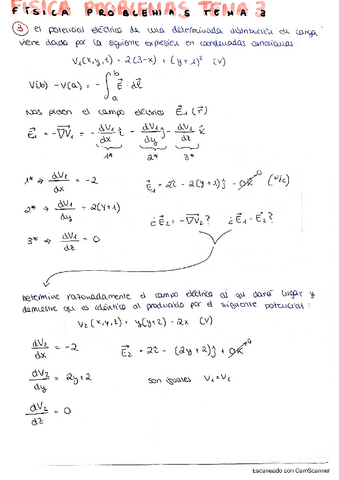 FÍSICA PROBLEMAS TEMA 3
③ El potencial eléctrico de una determinada distribución de carga
viene dado por la siguiente expresión en coordenadas cartesianas
V₁(x,y,z) = 2(3-x) + (y+1)² (V)
V(b) - V(a) = -∫ₐᵇ E⃗·dl⃗
Nos piden el campo eléctrico E⃗₁(r⃗)
E⃗₁ = -∇⃗V₁ = - dV₁/dx î - dV₁/dy ĵ - dV₁/dz k̂
1* 2* 3*
1* → dV₁/dx = -2
E⃗₁ = 2î - 2(y+1)ĵ - 0k̂ (N/C)
2* → dV₁/dy = 2(y+1)
¿E⃗₂ = -∇⃗V₂? ¿E⃗₁ = E⃗₂?
3* → dV₁/dz = 0
Determine razonadamente el campo eléctrico al que dará lugar y
demuestre que es idéntico al producido por el siguiente potencial:
V₂(x,y,z) = y(y+2) - 2x (V)
dV₂/dx = -2
E⃗₂ = 2î - (2y+2)ĵ + 0k̂
dV₂/dy = 2y+2
son iguales V₁=V₂
dV₂/dz = 0
Escaneado con CamScanner